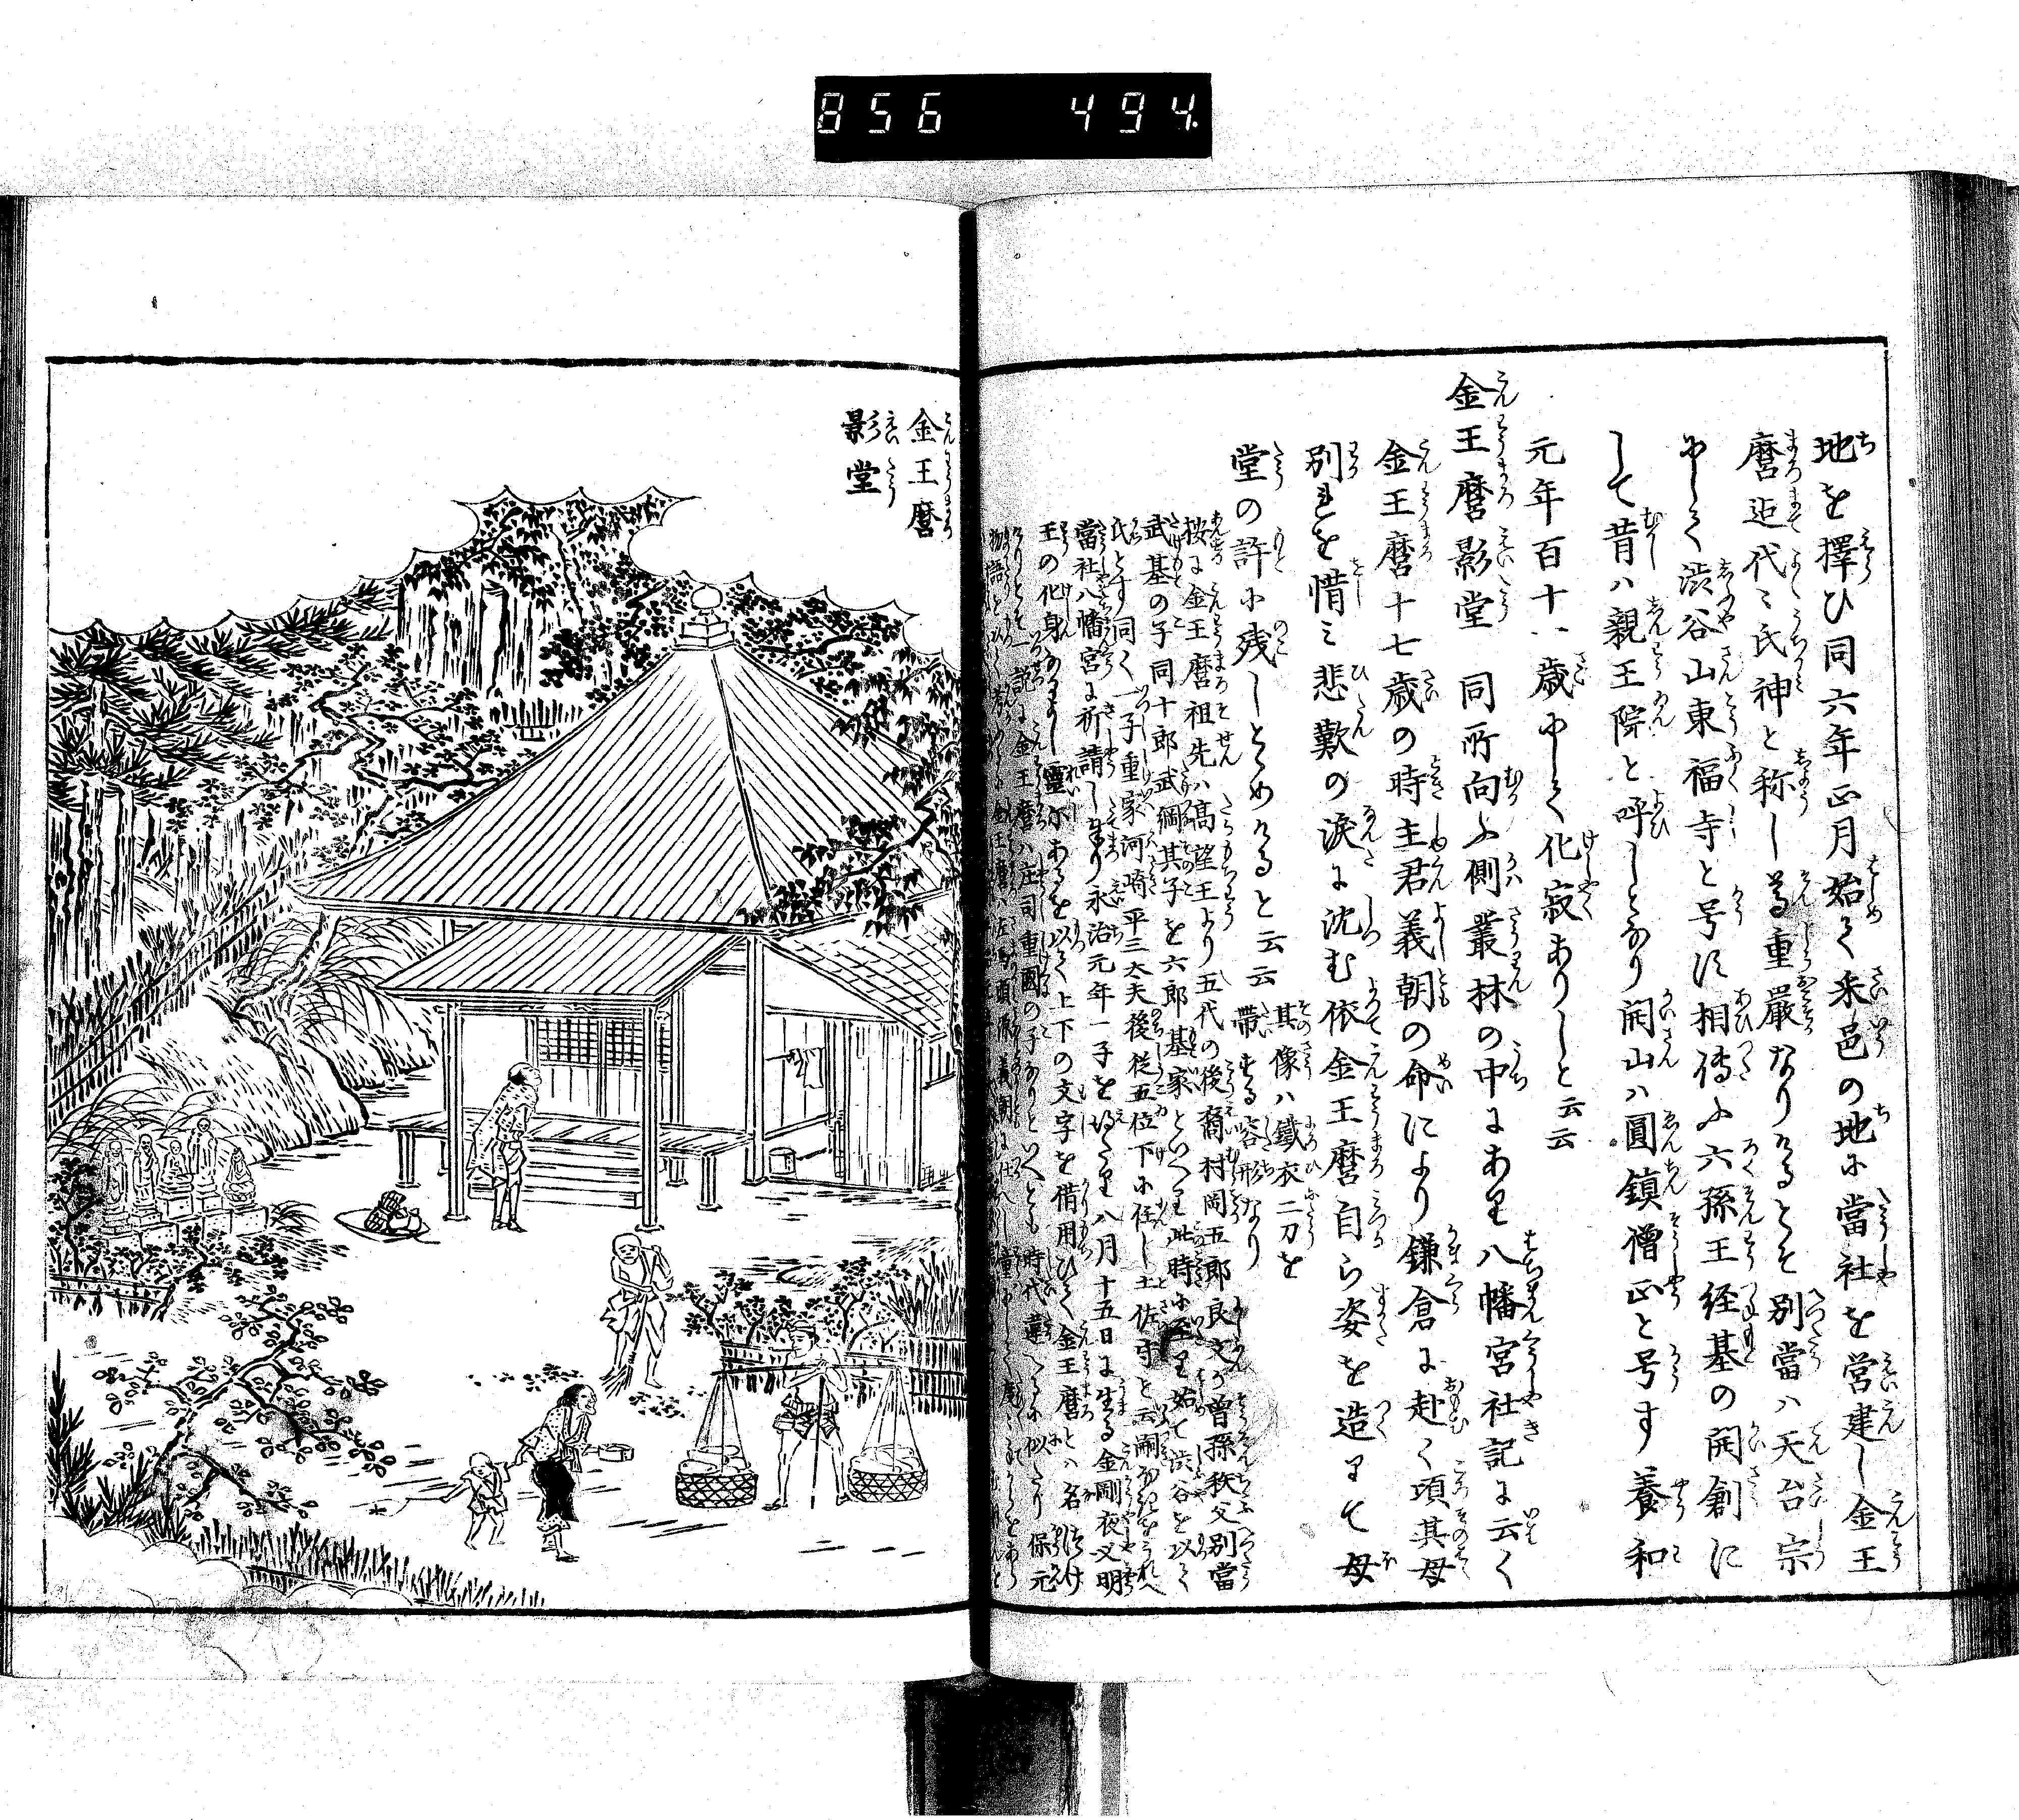 856 494
地を擇ひ同六年正月始て采邑の地に當社を営建し金王
麿迄代々氏神と称し尊重嚴なりけるとそ別當ハ天台宗
にして渋谷山東福寺と号す相傳ふ六孫王経基の開創に
して昔ハ親王院と呼しとなり開山ハ圓鎮僧正と号す養和
元年百十八歳にして化寂ありしと云云
金王麿影堂 同所向ふ側叢林の中にあり八幡宮社記に云く
金王麿十七歳の時主君義朝の命により鎌倉に赴く頃其母
別れを惜み悲歎の涙に沈む依金王麿自ら姿を造りて母
堂の許に残しとゝめけると云云
其像ハ鐵衣二刀を
帯せる容形なり
按に金王麿祖先ハ高望王より五代の後裔村岡五郎良文の曽孫秩父別當
武基の子同十郎武綱其子を六郎基家といへり此時に至り始て渋谷を以て
氏とす同く一子重家河崎平三大夫後従五位下に任し土佐守と云嗣
當社八幡宮に祈請しけり永治元年一子を得たり八月十五日に生る金剛夜叉明
王の化身なるよし靈示あるを以て上下の文字を借用ひて金王麿とハ名つけ
けりとそ一説に金王麿ハ庄司重國の子なりといへとも時代違へるに似たり保元
物語
金王麿
影堂